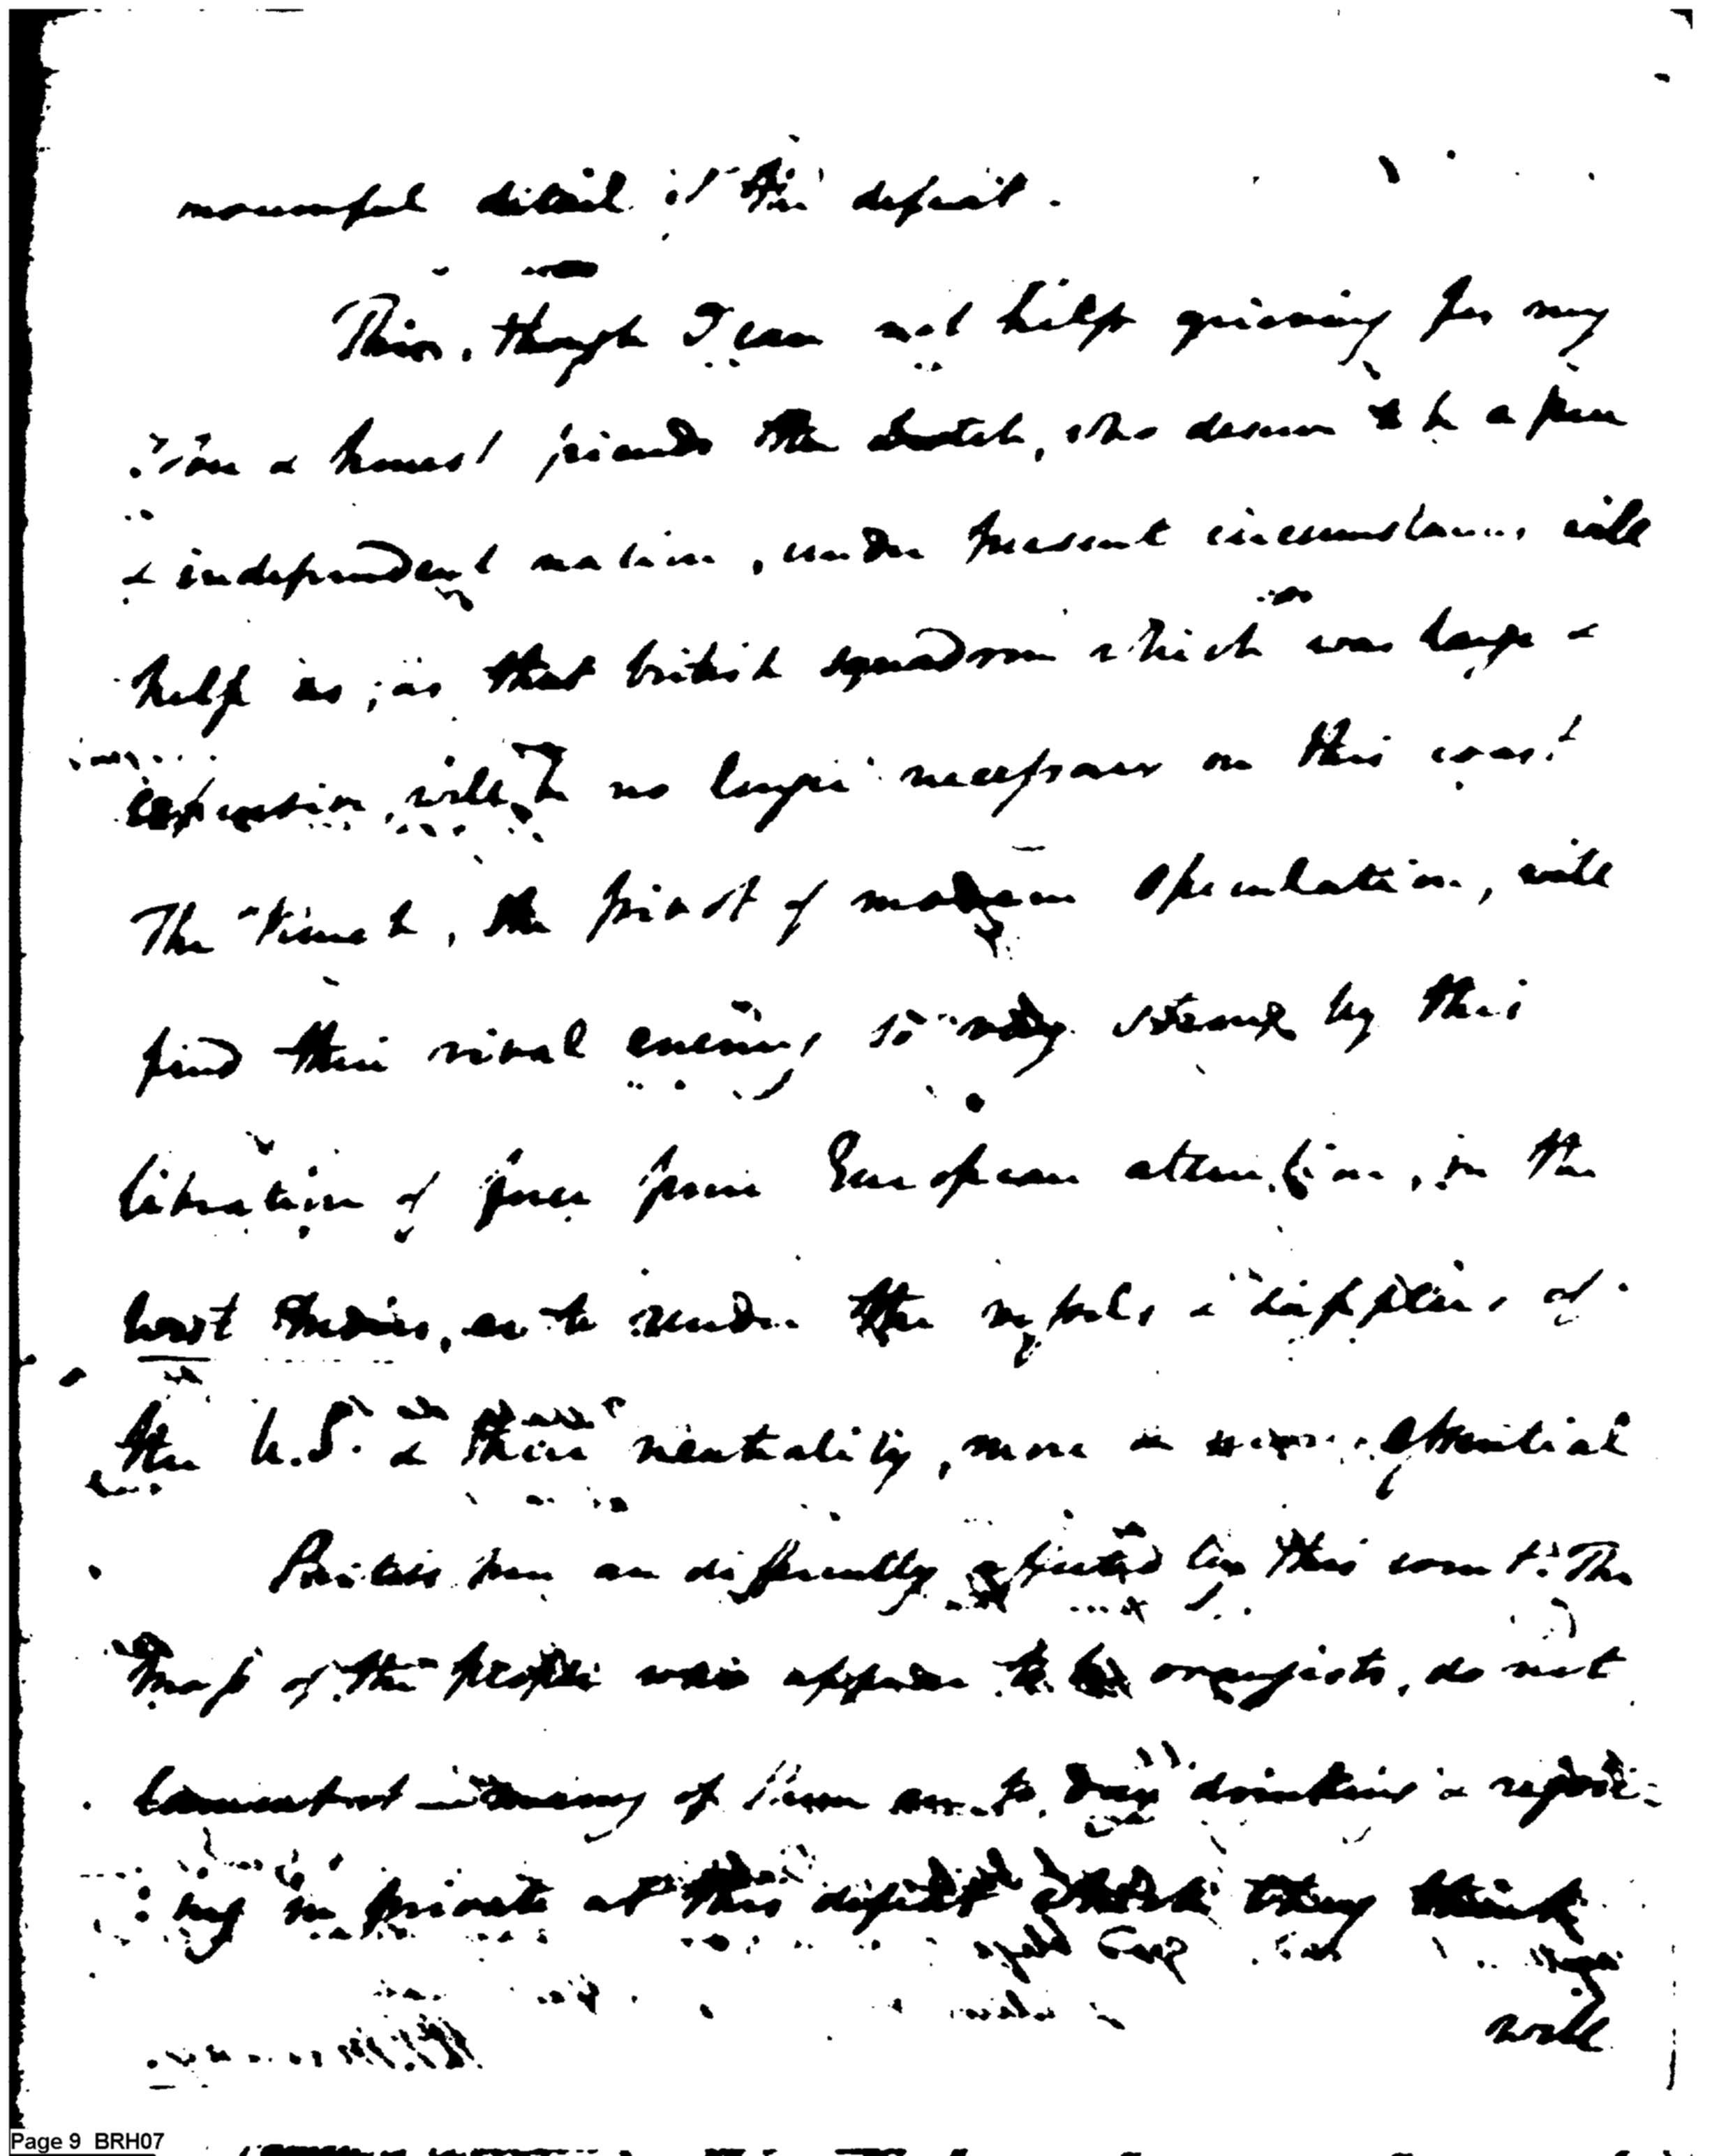 mournful detail of this defeat.
This, though I can not help grieving for my
& honest friends the dutch, who deserve to be a free
& independent nation, under present circumstances will
help us, as that british squadron which was large &
expensive, will be no longer necessary on this coast
The French, the first of modern speculation, will
find their rival enemy so strong by this
liberation of force from European attention, in the
West Indies, as to render the & supplies of
the U.S. & their neutrality, more & more essential
Parties here are differently affected by this event. The
Mass of the people who appear to be orangists, do not
lament it & many of them are to day drinking & rejoic=
:ing in private at this defeat which they think
will
Page 9 BRH07